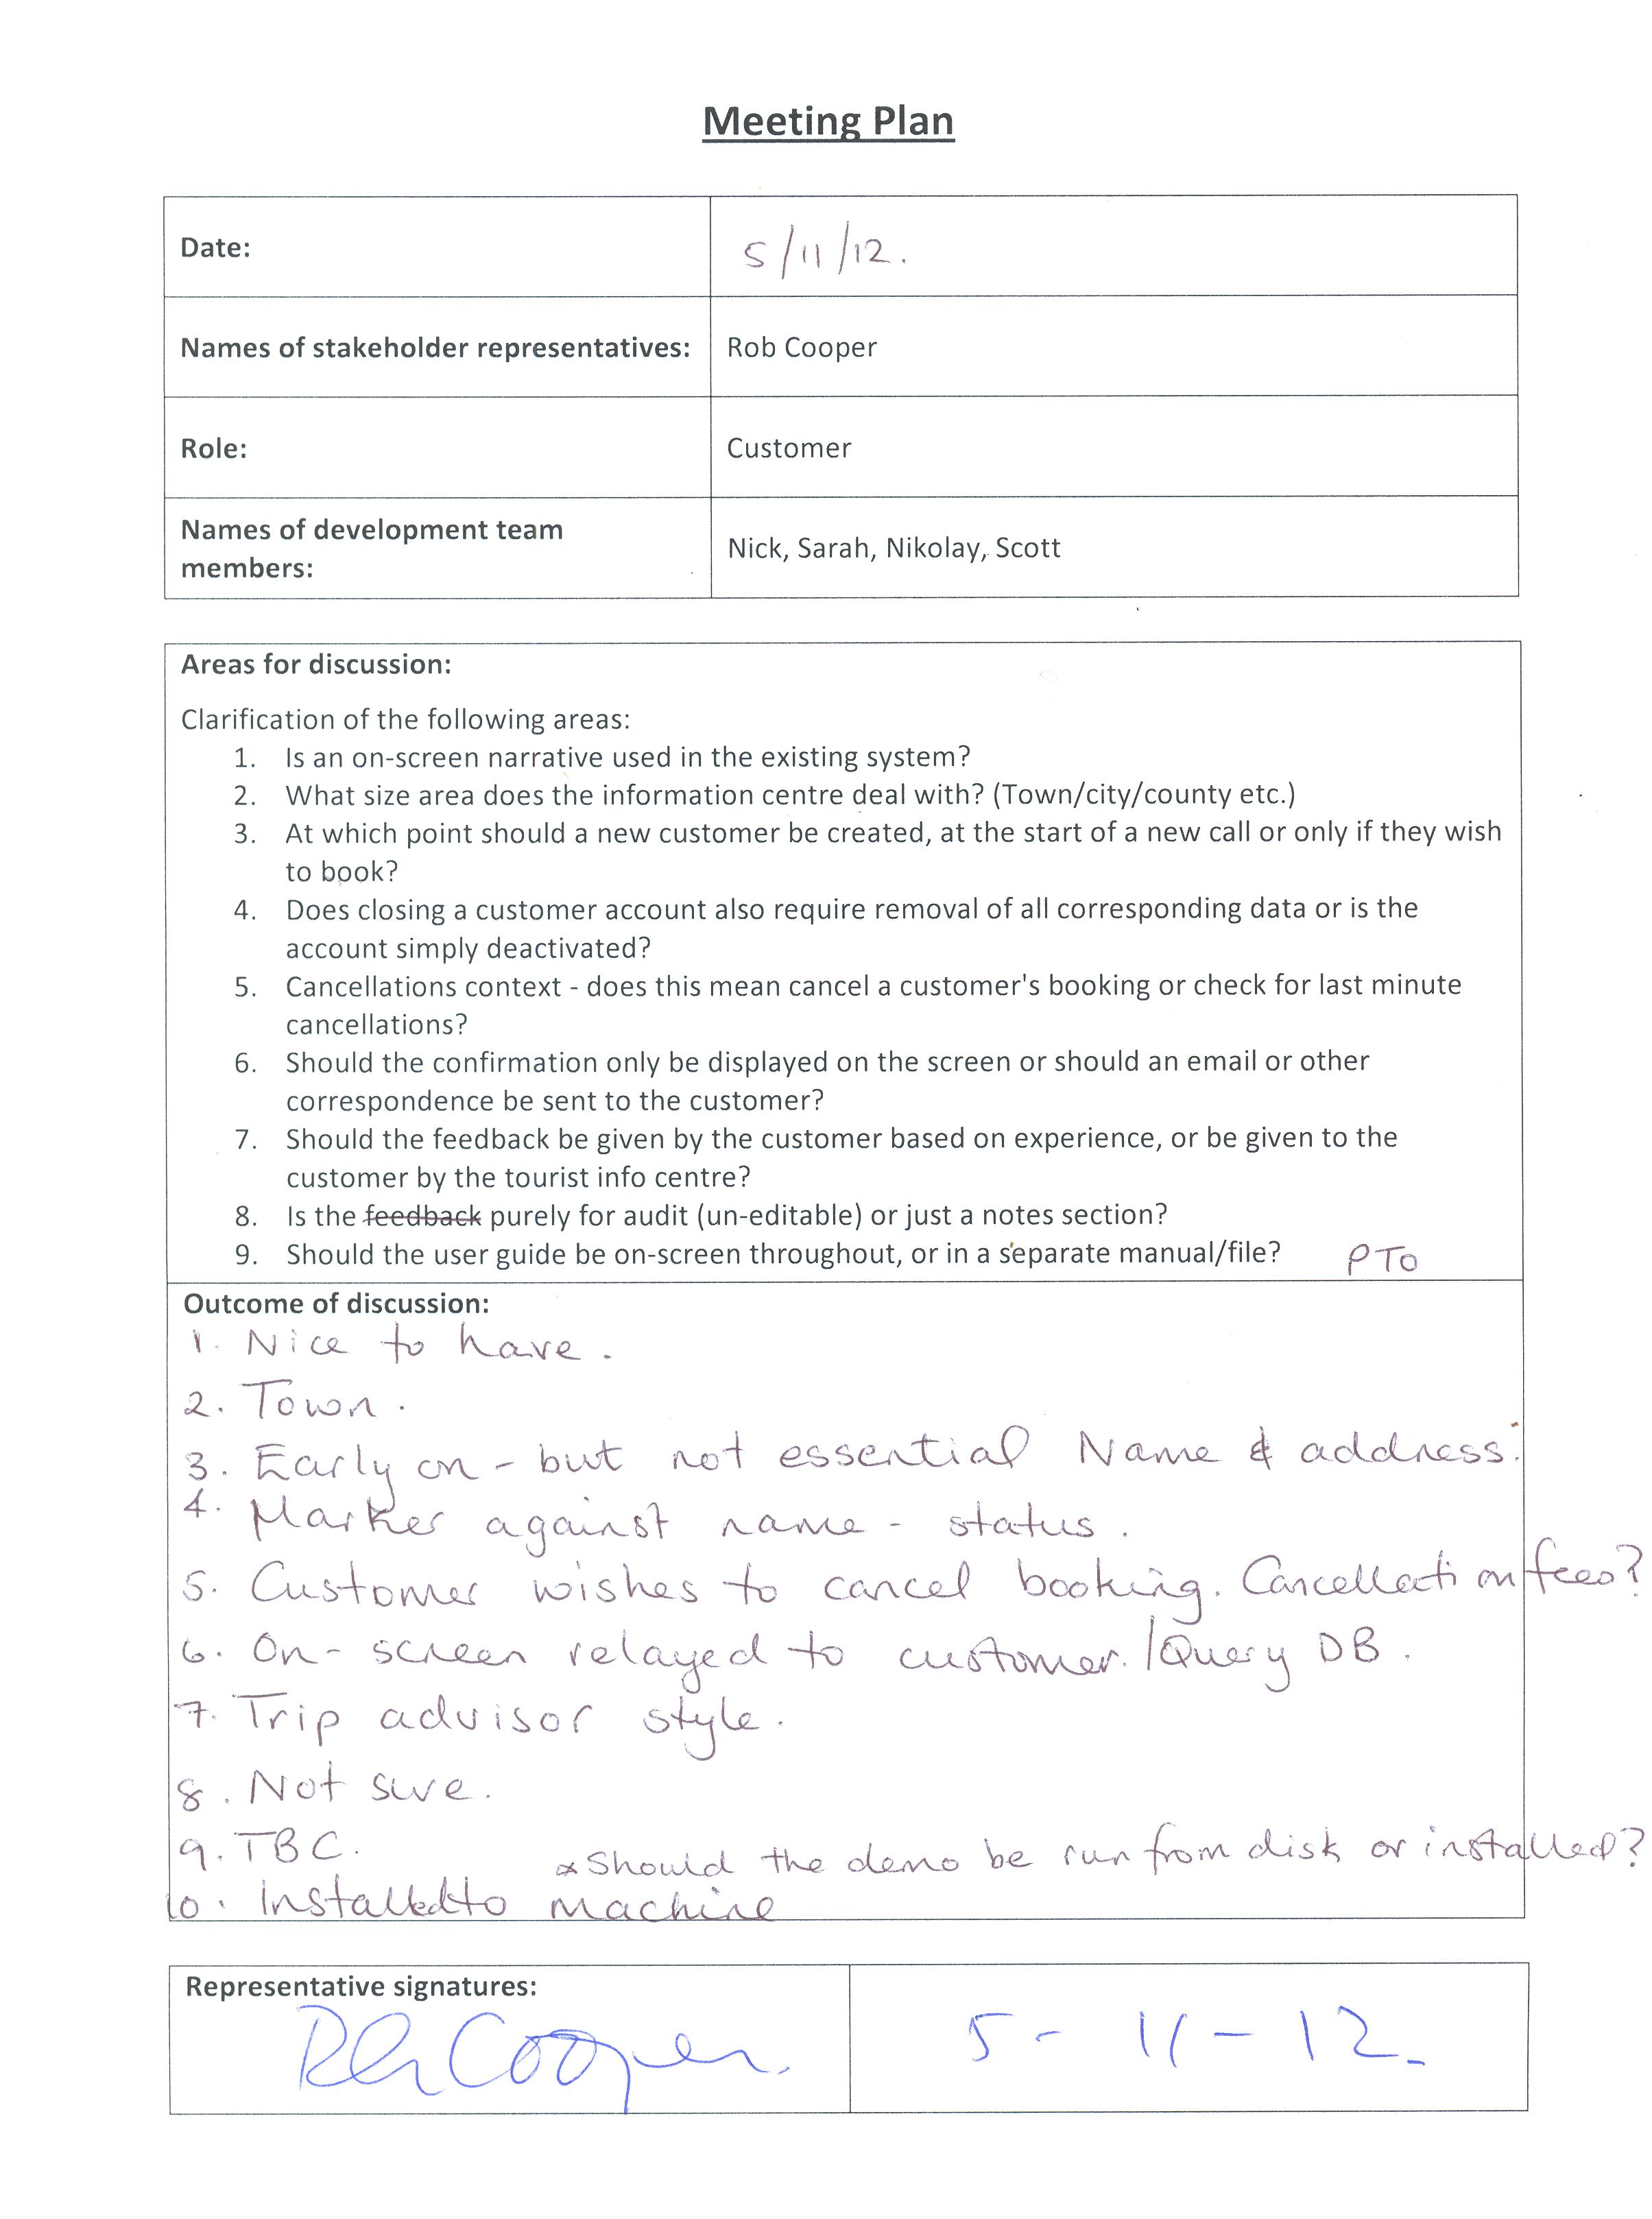 Meeting Plan
Date: 5/11/12.
Names of stakeholder representatives: Rob Cooper
Role: Customer
Names of development team
members: Nick, Sarah, Nikolay, Scott
Areas for discussion:
Clarification of the following areas:
1. Is an on-screen narrative used in the existing system?
2. What size area does the information centre deal with? (Town/city/county etc.)
3. At which point should a new customer be created, at the start of a new call or only if they wish
to book?
4. Does closing a customer account also require removal of all corresponding data or is the
account simply deactivated?
5. Cancellations context - does this mean cancel a customer's booking or check for last minute
cancellations?
6. Should the confirmation only be displayed on the screen or should an email or other
correspondence be sent to the customer?
7. Should the feedback be given by the customer based on experience, or be given to the
customer by the tourist info centre?
8. Is the feedback purely for audit (un-editable) or just a notes section?
9. Should the user guide be on-screen throughout, or in a separate manual/file? PTO
Outcome of discussion:
1. Nice to have.
2. Town.
3. Early on - but not essential Name & address.
4. Marker against name - status.
5. Customer wishes to cancel booking. Cancellation fees?
6. On-screen relayed to customer./Query DB.
7. Trip advisor style.
8. Not sure.
9. TBC.
* Should the demo be run from disk or installed?
10. Installed to machine
Representative signatures:
Cooper. 5-11-12.